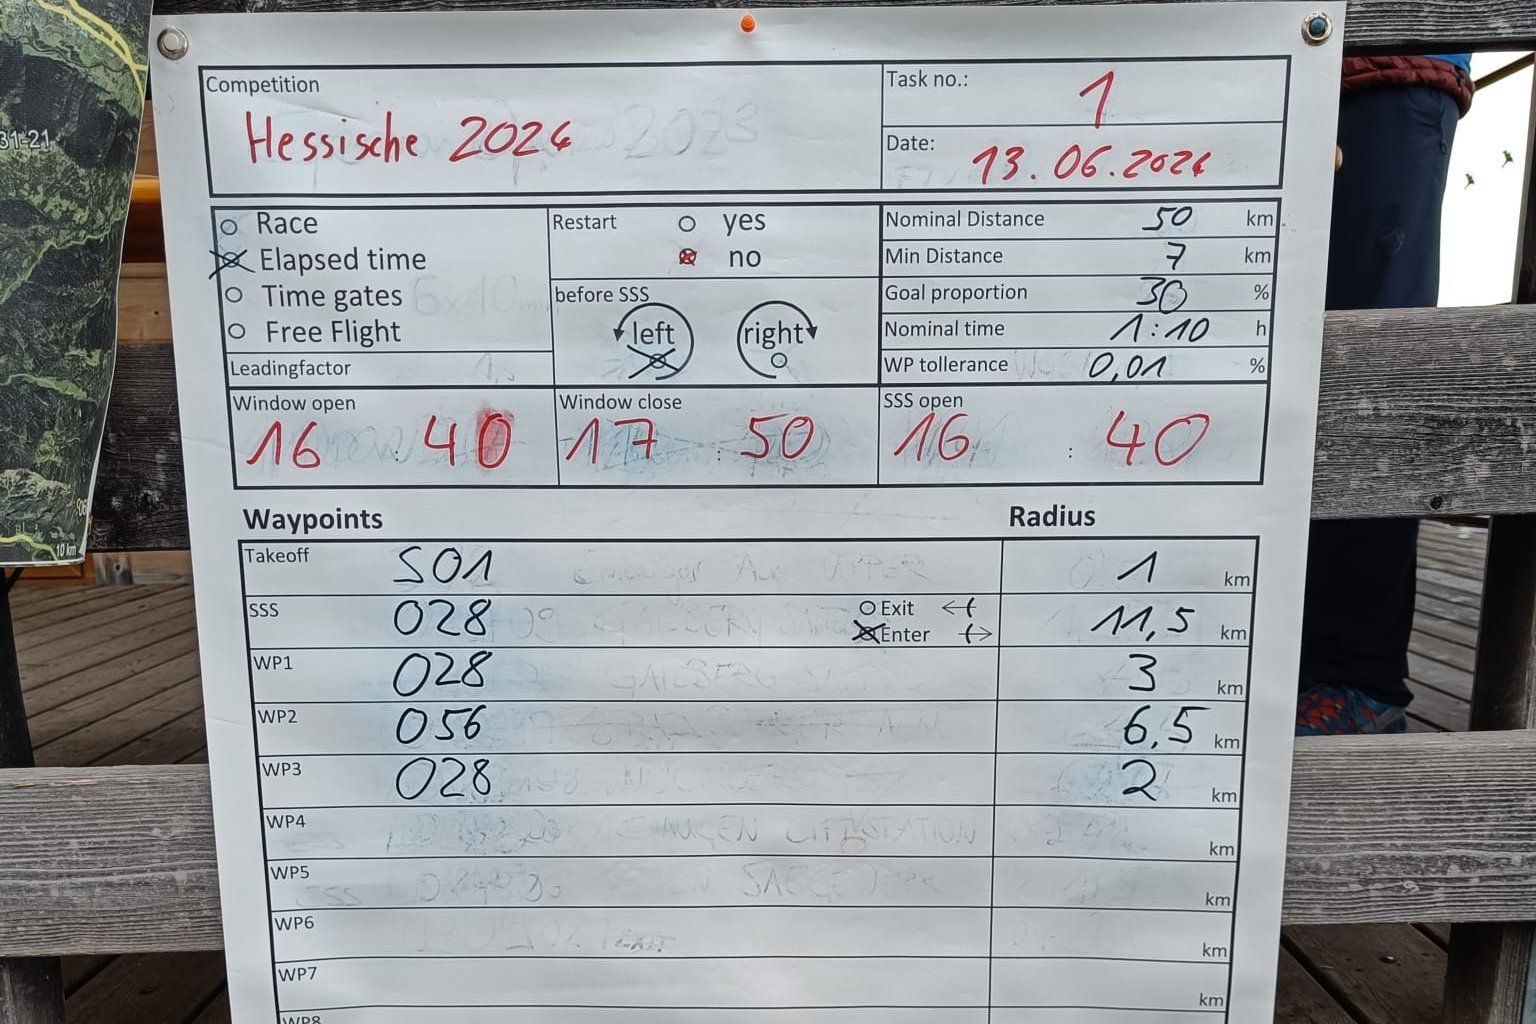 31-21
10 km
Competition
Hessische 2024
Task no.: 1
Date: 13.06.2024
Race
Elapsed time
Time gates
Free Flight
Leadingfactor
Restart yes
no
before SSS
left right
Nominal Distance 50 km
Min Distance 7 km
Goal proportion 30 %
Nominal time 1:10 h
WP tollerance 0,01 %
Window open
16 : 40
Window close
17 : 50
SSS open
16 : 40
Waypoints Radius
Takeoff S01 1 km
SSS 028 Exit Enter 11,5 km
WP1 028 3 km
WP2 056 6,5 km
WP3 028 2 km
WP4 km
WP5 km
WP6 km
WP7 km
WP8